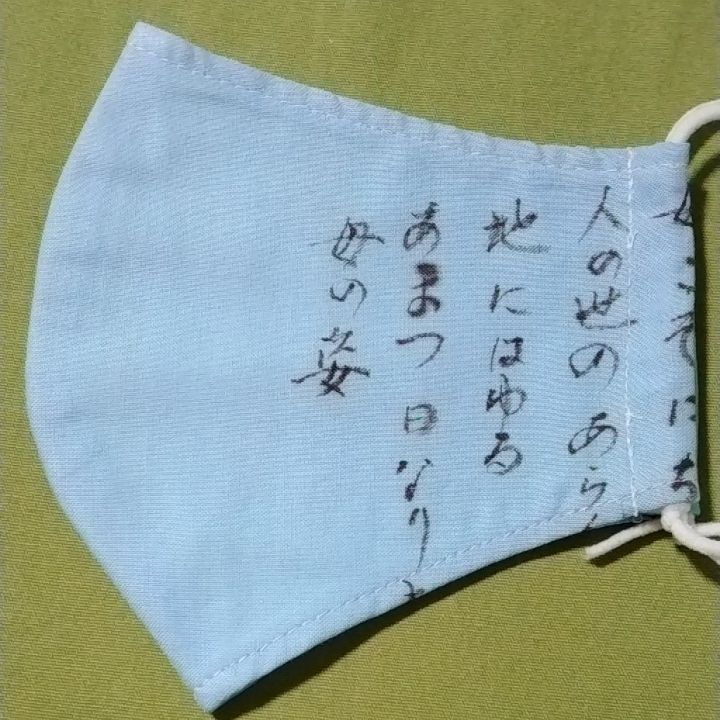 こそに
人の世のあら
地にはゆる
あまつ日なり
母の姿